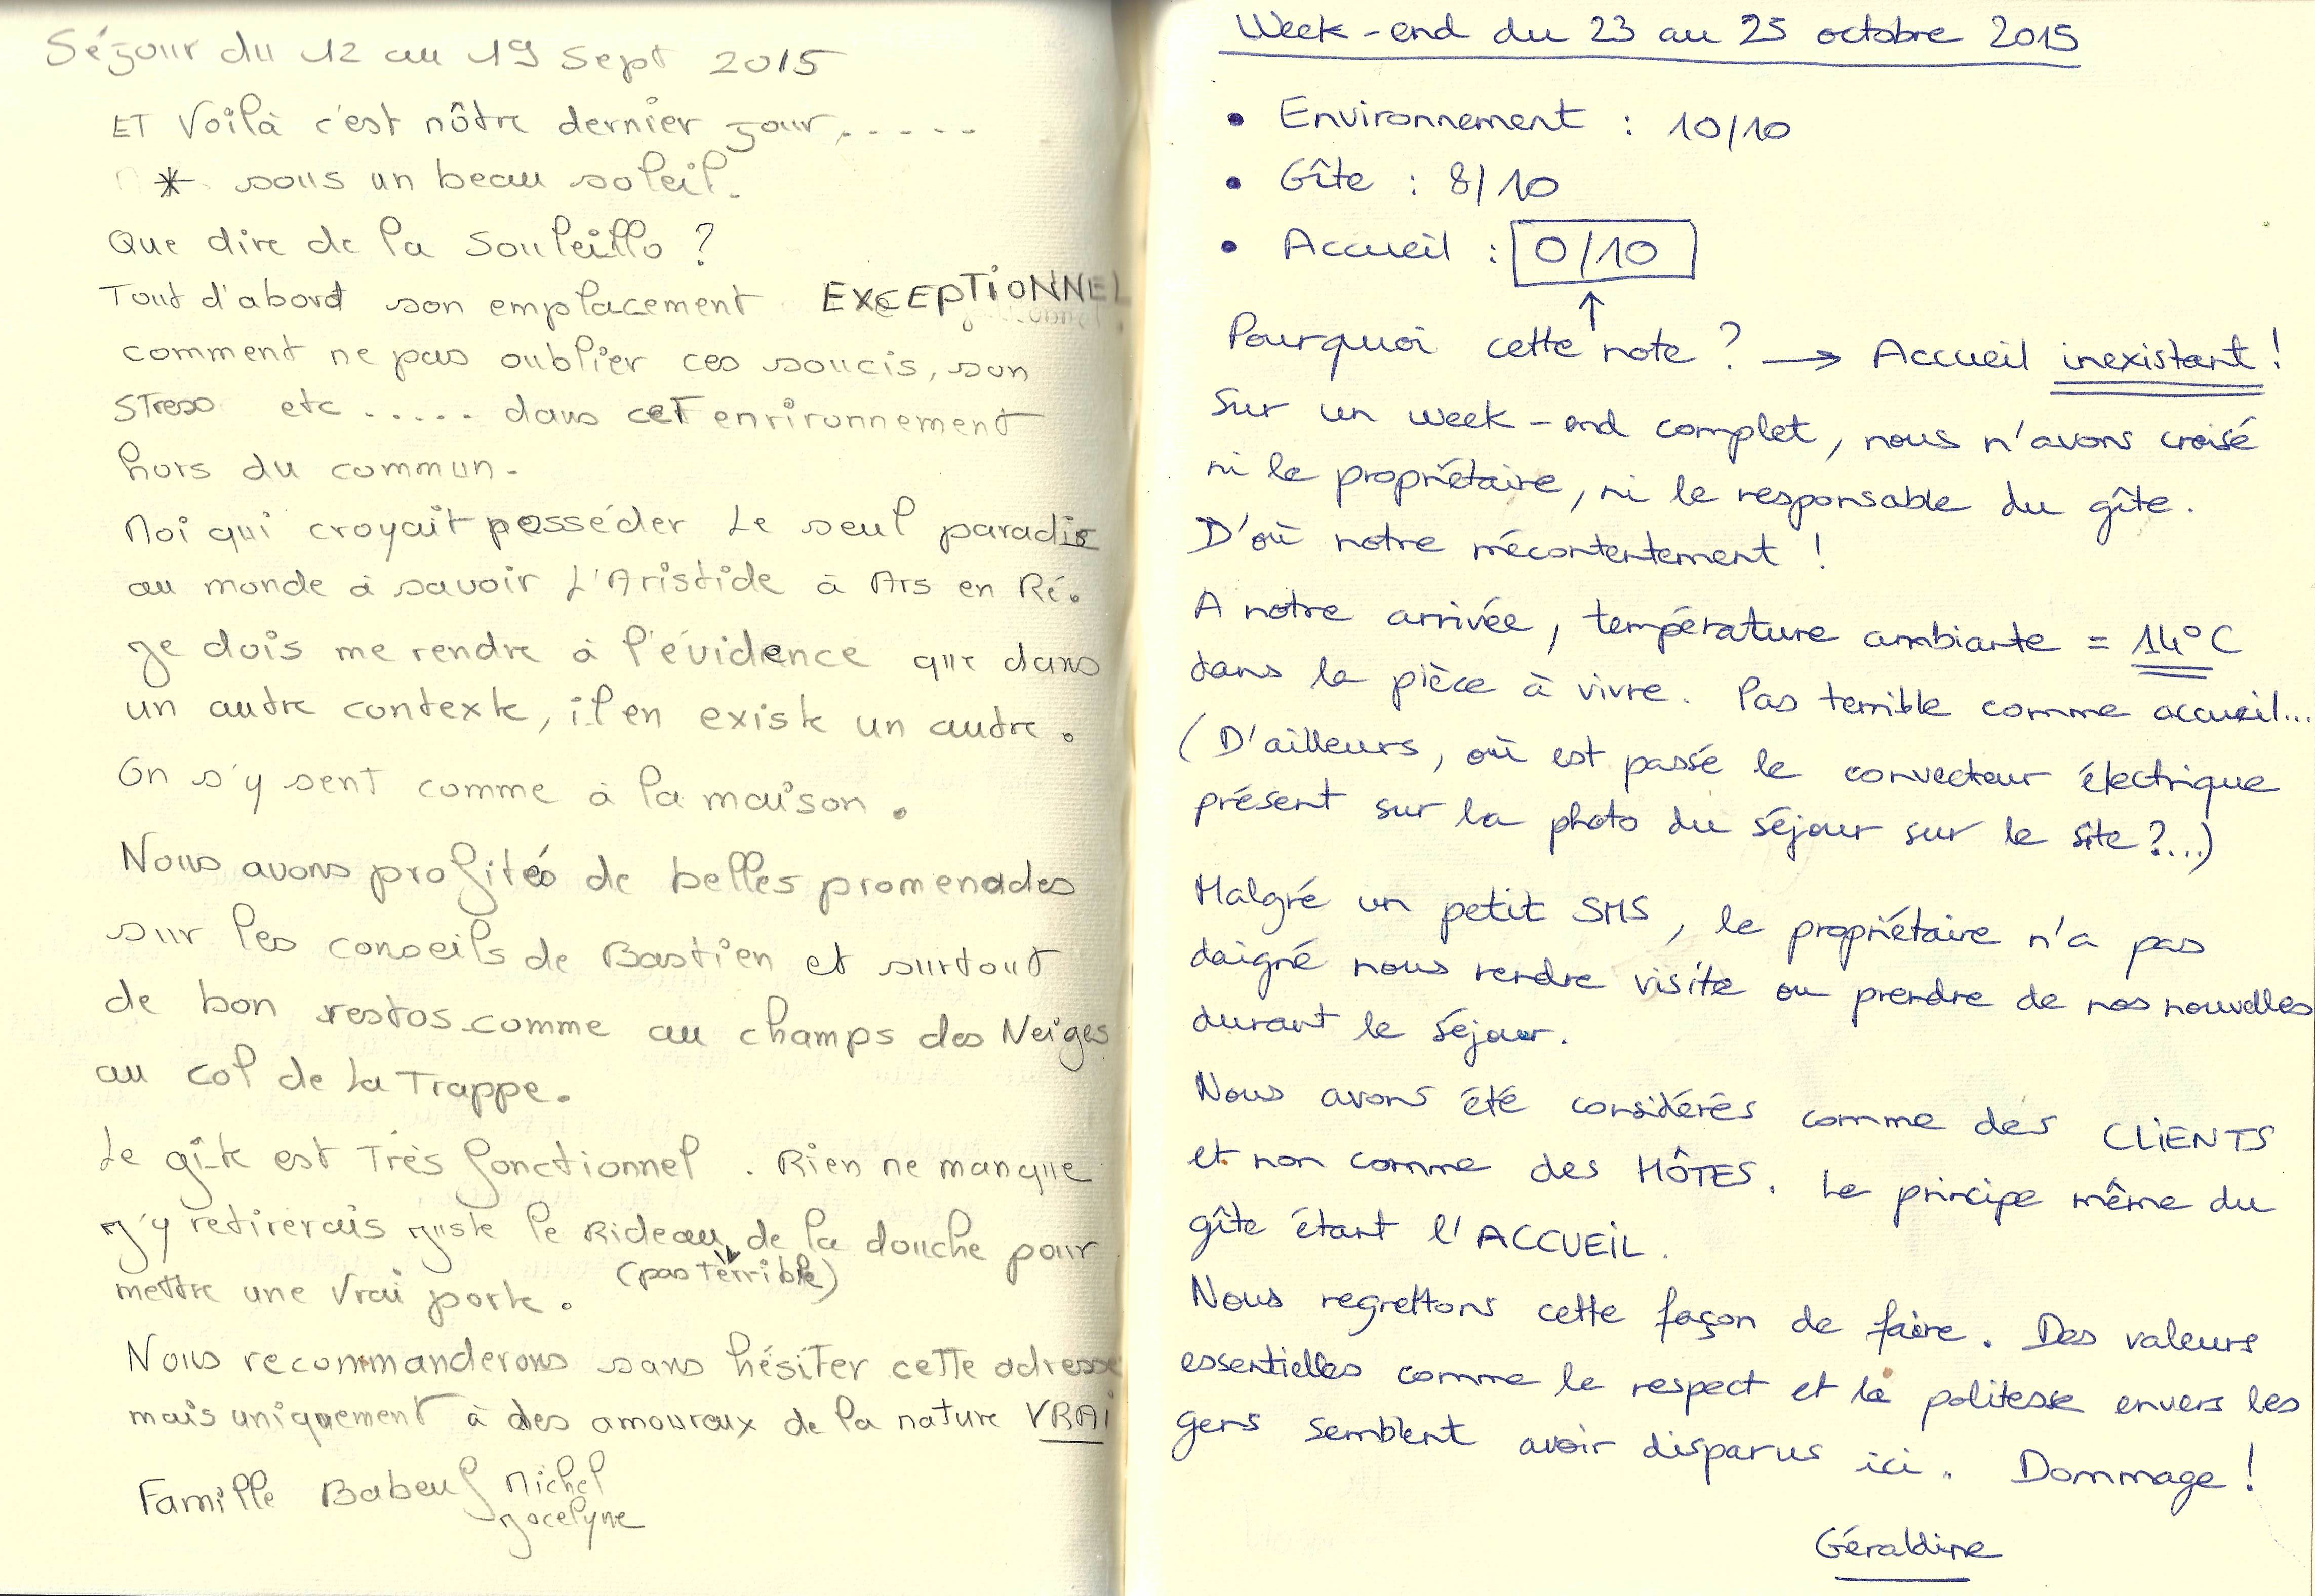 Séjour du 12 au 19 Sept 2015
ET Voilà c'est nôtre dernier jour......
* sous un beau soleil.
Que dire de la Souleillo ?
Tout d'abord son emplacement EXCEPTIONNEL
comment ne pas oublier ces soucis, son
Stress etc ..... dans cet environnement
hors du commun.
Moi qui croyait posséder Le seul paradis
au monde à savoir L'Aristide à Ars en Ré.
je dois me rendre à l'évidence que dans
un autre contexte, il en existe un autre.
On s'y sent comme à la maison.
Nous avons profités de belles promenades
sur les conseils de Bastien et surtout
de bon restos comme au champs des Neiges
au col de La Trappe.
Le gîte est Très fonctionnel. Rien ne manque
j'y retirerais juste le Rideau de la douche pour
(pas terrible)
mettre une vrai porte.
Nous recommanderons sans hésiter cette adresse
mais uniquement à des amoureux de la nature VRAI
Famille Babeuf Michel
Jocelyne
Week-end du 23 au 25 octobre 2015
• Environnement : 10/10
• Gîte : 8/10
• Accueil : 0/10
↑
Pourquoi cette note ? → Accueil inexistant !
Sur un week-end complet, nous n'avons croisé
ni le propriétaire, ni le responsable du gîte.
D'où notre mécontentement !
A notre arrivée, température ambiante = 14°C
dans la pièce à vivre. Pas terrible comme accueil...
(D'ailleurs, où est passé le convecteur électrique
présent sur la photo du séjour sur le site ?...)
Malgré un petit SMS, le propriétaire n'a pas
daigné nous rendre visite ou prendre de nos nouvelles
durant le séjour.
Nous avons été considérés comme des CLIENTS
et non comme des HÔTES. Le principe même du
gîte étant l'ACCUEIL.
Nous regrettons cette façon de faire. Des valeurs
essentielles comme le respect et la politesse envers les
gens semblent avoir disparus ici. Dommage !
Géraldine